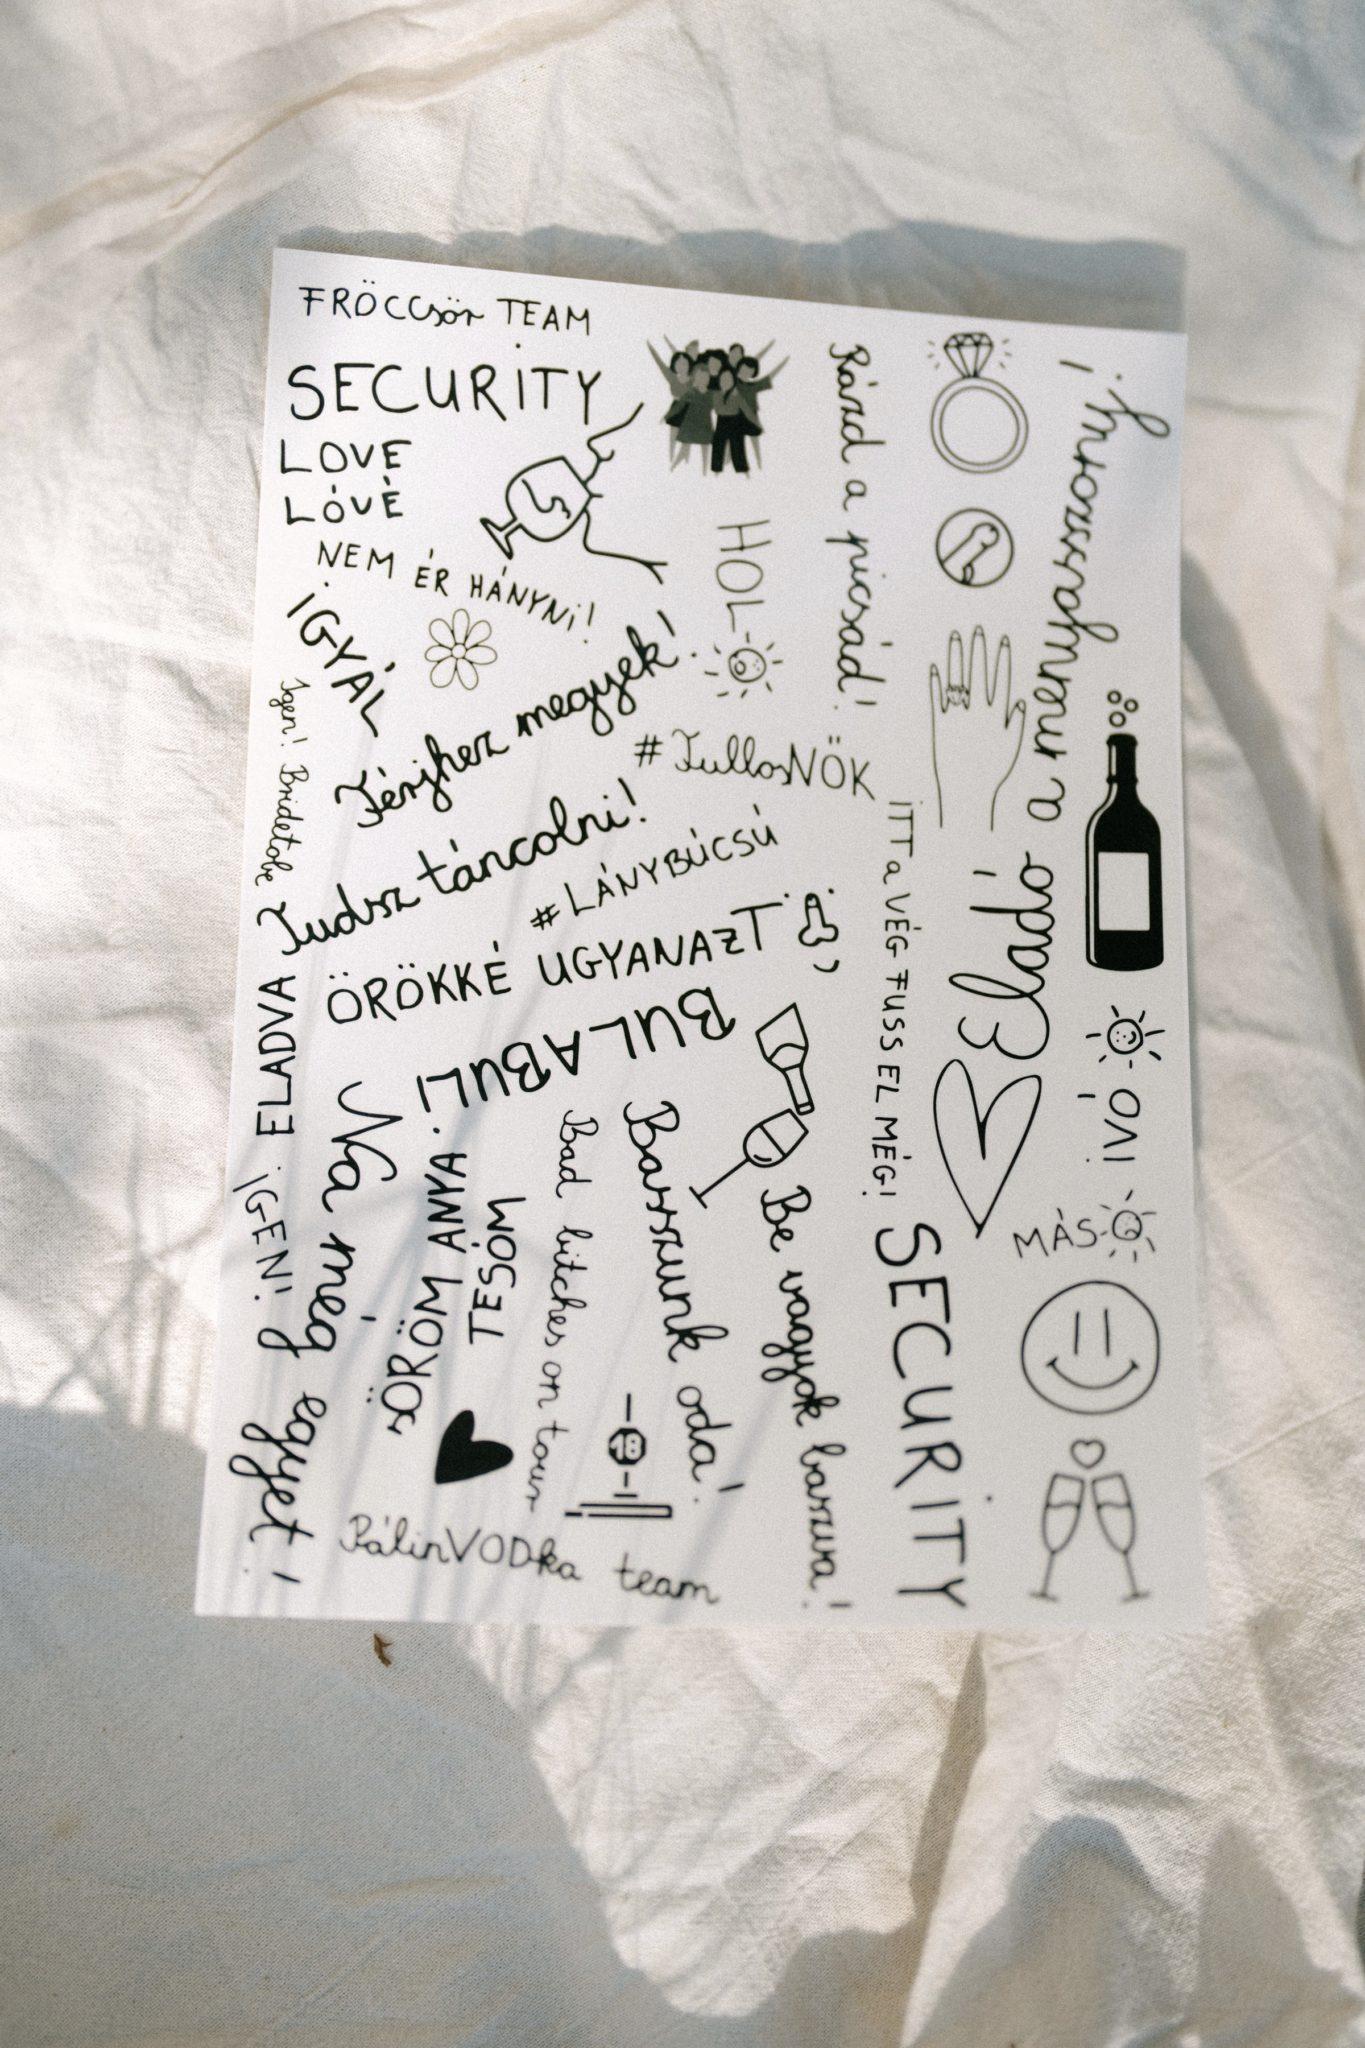 FRÖCCsör TEAM
SECURITY
LOVE
LÓVÉ
NEM ÉR HÁNYNI!
IGYÁL
HOL-
Rázd a picsád!
Eladó a menyasszony!
Igen! Bridetobe
Férjhez megyek!
#TullosNŐK
Tudsz táncolni!
#LÁNYBÚCSÚ
ÖRÖKKÉ UGYANAZT
,
ITT a VÉG FUSS EL MÉG!
ELADVA
BULABULI
IVÓ!
MÁS-
IGEN!
Na még egyet!
ÖRÖM ANYA
TESÓM
Bad bitches on tour
Basszunk oda!
Be vagyok baszva!
SECURITY
18
PálinVODka team